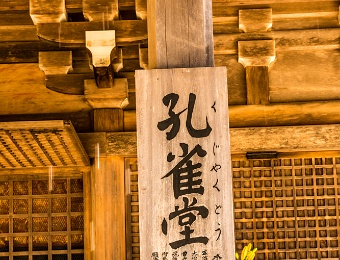 孔雀堂
くじゃくどう